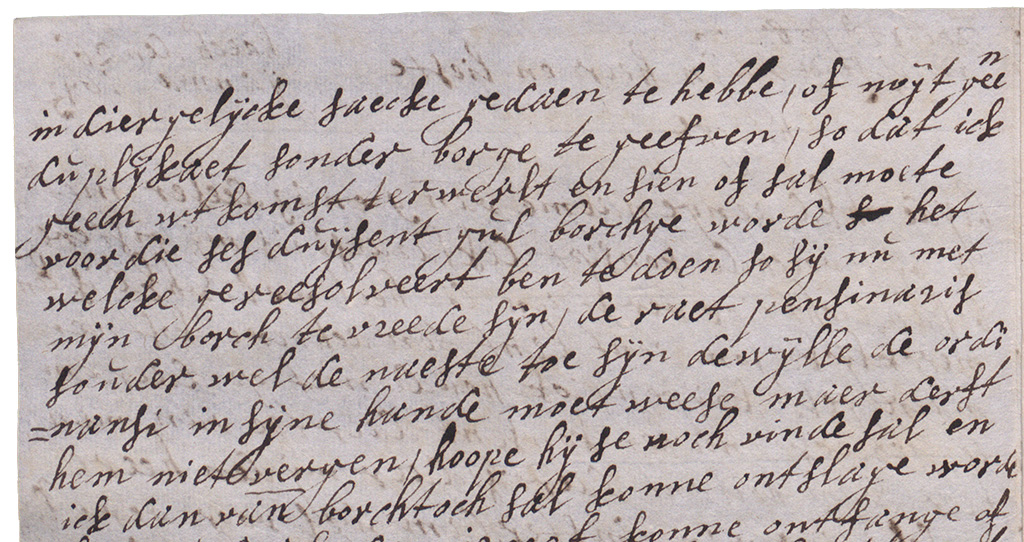 in diergelijcke saecke gedaen te hebbe, of noijt geen
duplijkaet sonder borge te geefven, so dat ick
geen wtkomst ter werlt en sien of sal moete
voor die ses duijsent gul borchge worde het
welcke gereesolveert ben te doen so sij nu met
mijn borch te vreede sijn, de raet pensinaris
souder wel de naeste toe sijn dewijlle de ordi
=nansi in sijne hande moet weese maer derft
hem niet vergen, hoope hij se noch vinde sal en
ick dan van borchtoch sal konne ontslage worde
konne ontfange of